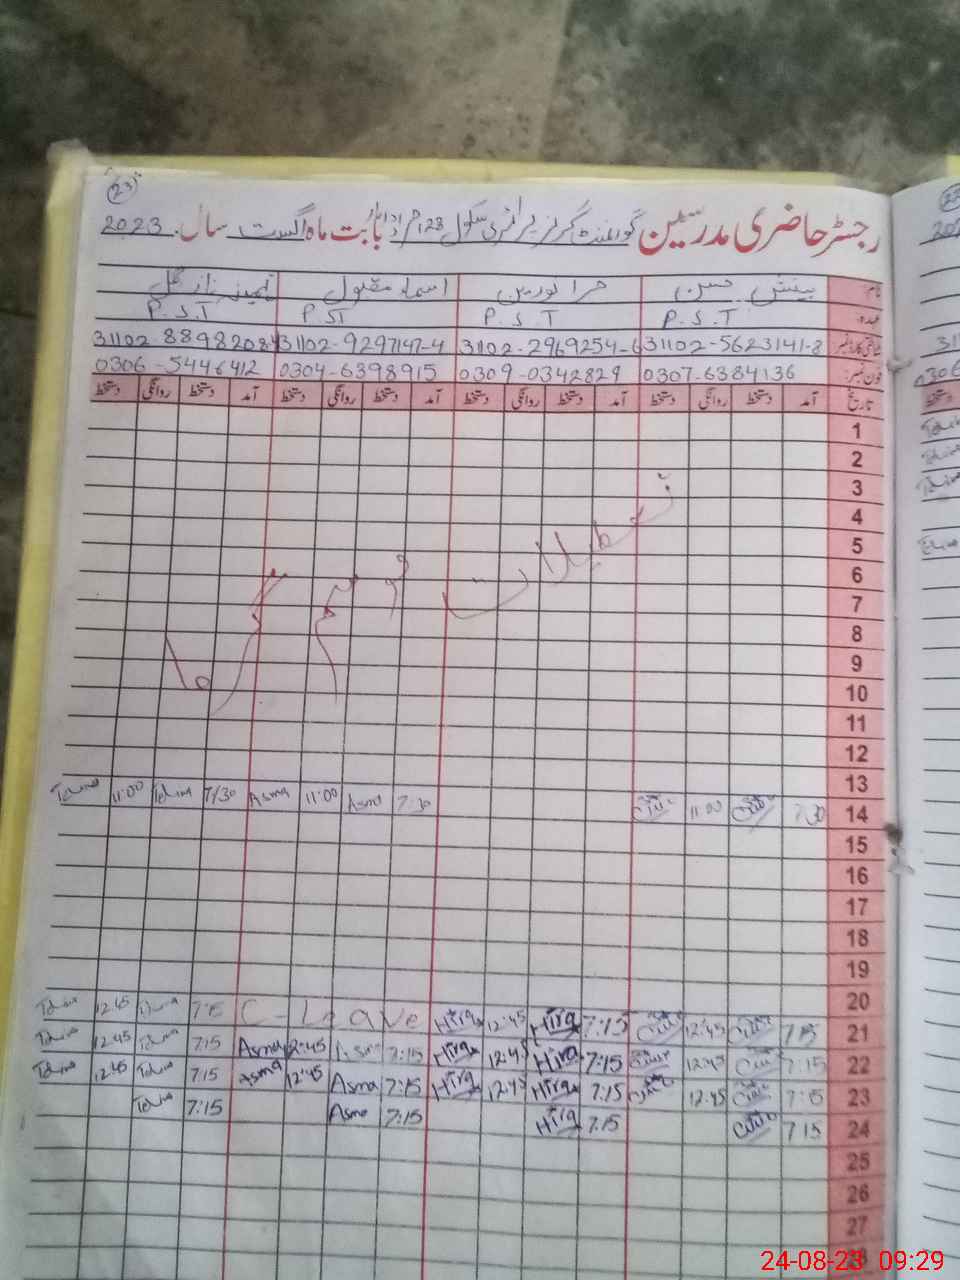 23
رجسٹر حاضری مدرسین گورنمنٹ گرلز پرائمری سکول 123 مراد بابت ماہ اگست سال 2023
نام: بینش حسن حرا نورین اسماء مقبول
عہدہ: P.S.T P.S.T P.ST P.S.T
شناختی کارڈ نمبر 31102-5623141-8 31102-2969254-6 31102-9297147-4 31102-8898208
فون نمبر: 0307-6384136 0309-0342829 0304-6398915 0306-5446412
تاریخ آمد دستخط روانگی دستخط آمد دستخط روانگی دستخط آمد دستخط روانگی دستخط آمد دستخط روانگی دستخط
1
2
3
4
5
تعطیلات موسم گرما
6
7
8
9
10
11
12
13
14 7:30 11:00 7:30 Asma 11:00 Asma 7/30 11:00
15
16
17
18
19
20
21 7:15 12:45 7:15 Hira 12:45 Hira C-Leave 7:15 12:45
22 7:15 12:45 7:15 Hira 12:45 Hira 7:15 Asma 12:45 Asma 7:15 12:45
23 7:15 12:45 7:15 Hira 12:45 Hira 7:15 Asma 12:45 Asma 7:15 12:45
24 7:15 7:15 Hira 7:15 Asma 7:15
25
26
27
28
24-08-23 09:29